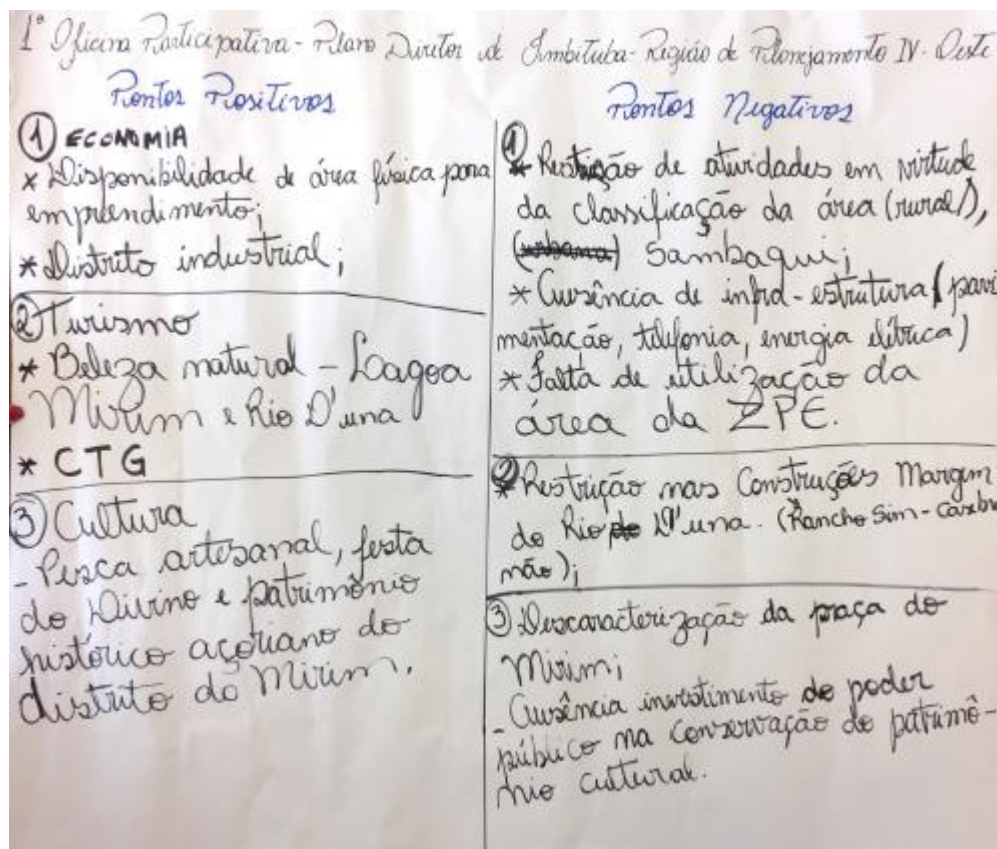 1ª Oficina Participativa - Plano Diretor de Imbituba - Região de Planejamento IV - Oeste
Pontos Positivos
① ECONOMIA
* Disponibilidade de área física para
empreendimento;
* Distrito industrial;
② Turismo
* Beleza natural - Lagoa
Mirim e Rio D'una
* CTG
③ Cultura
- Pesca artesanal, festa
do Divino e patrimônio
histórico açoriano do
distrito do Mirim.
Pontos Negativos
①
* Restrição de atividades em virtude
da classificação da área (rural),
(urbana) Sambaqui;
* Ausência de infra-estrutura (pavi
mentação, telefonia, energia elétrica)
* Falta de utilização da
área da ZPE.
②
* Restrição nas Construções Margem
do Rio do D'una. (Rancho Sim -
não);
③ Descaracterização da praça do
Mirim;
- Ausência investimento do poder
público na conservação do patrimô-
nio cultural.